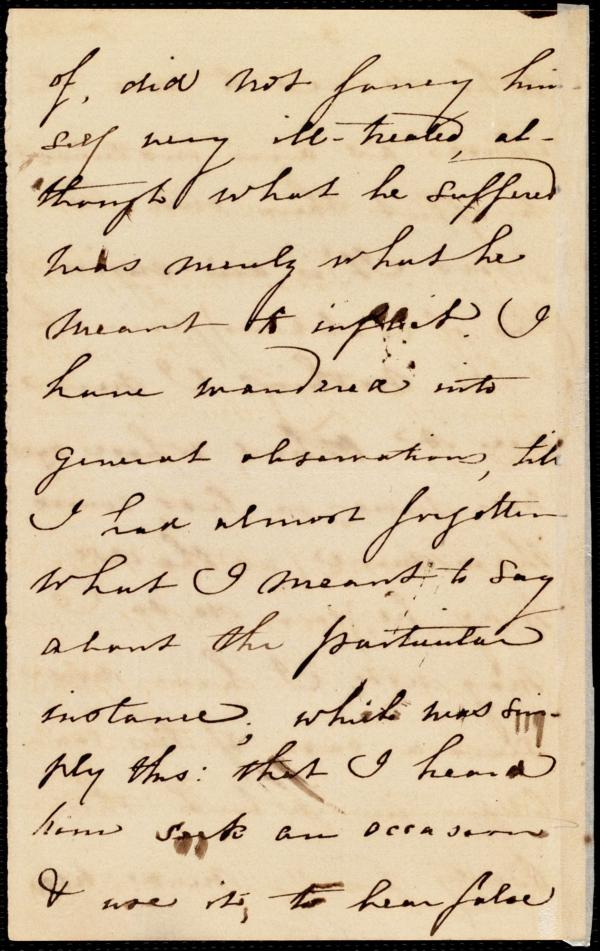 of, did not fancy him
self very ill-treated, al-
though what he suffered
was merely what he
meant to inflict. I
have wandered into
general observation, till
I had almost forgotten
what I meant to say
about the particular
instance; which was sim-
ply this: that I heard
him seek an occasion
& use it, to bear false